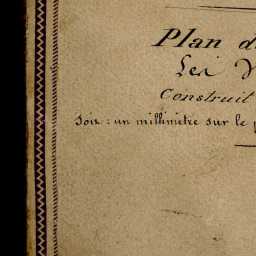 Plan d
Les
Construit
Soit : un millimètre sur le p